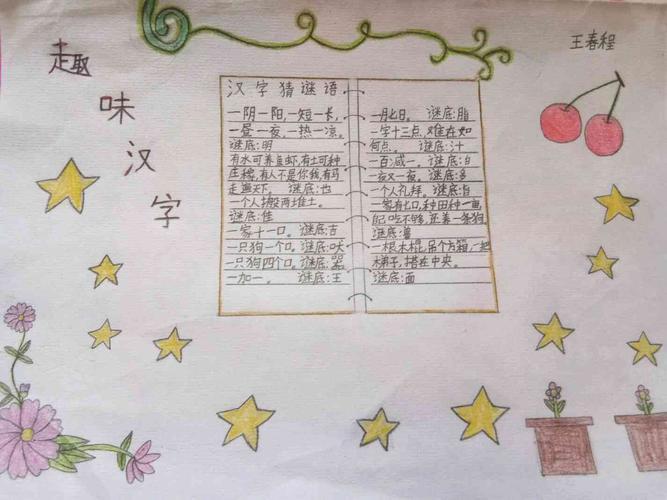 趣味汉字
王春程
汉字猜谜语
一阴一阳,一短一长,
一昼一夜,一热一凉。
谜底:明
有水可养鱼虾,有土可种
庄稼,有人不是你我,有马
走遍天下。谜底:也
一个人搬两堆土。
谜底:佳
一家十一口。谜底:吉
一只狗一个口。谜底:吠
一只狗四个口。谜底:器
一加一。谜底:王
一月七日。谜底:脂
一字十三点,难在如
何点。谜底:汁
一百减一。谜底:白
一夜又一夜。谜底:多
一个人礼拜。谜底:旨
一家有七口,种田种一亩,
自己吃不够,还养一条狗
谜底:兽
一根木棍,吊个方箱,一把
梯子,搭在中央。
谜底:面